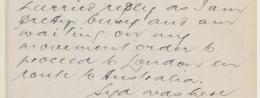 hurried reply as I am
pretty busy and am
waiting on any
movement order to
proceed to London en
route to Australia.
Syd was here